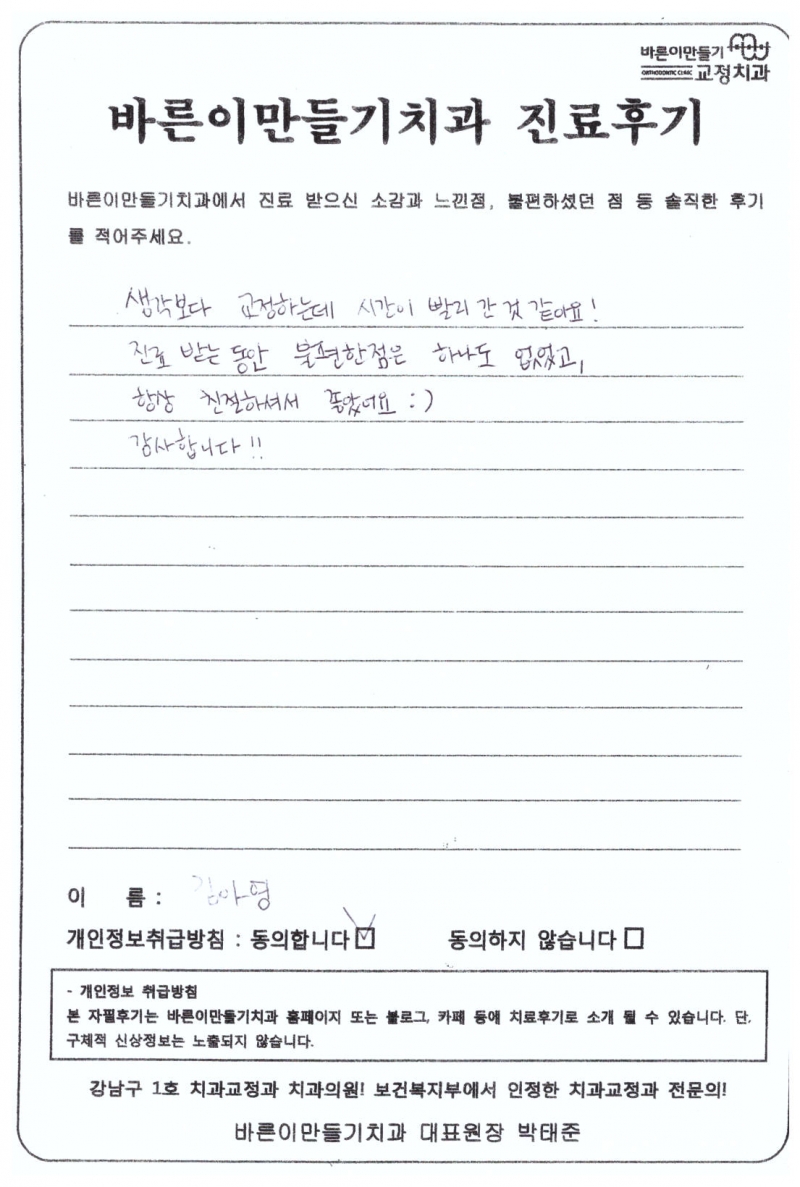 바른이만들기
ORTHODONTIC CLINIC 교정치과
바른이만들기치과 진료후기
바른이만들기치과에서 진료 받으신 소감과 느낀점, 불편하셨던 점 등 솔직한 후기
를 적어주세요.
생각보다 교정하는데 시간이 빨리 간 것 같아요!
진료 받는 동안 불편한점은 하나도 없었고,
항상 친절하셔서 좋았어요 :)
감사합니다!!
이 름 : 김아영
개인정보취급방침 : 동의합니다 ☑ 동의하지 않습니다 □
- 개인정보 취급방침
본 자필후기는 바른이만들기치과 홈페이지 또는 블로그, 카페 등에 치료후기로 소개 될 수 있습니다. 단,
구체적 신상정보는 노출되지 않습니다.
강남구 1호 치과교정과 치과의원! 보건복지부에서 인정한 치과교정과 전문의!
바른이만들기치과 대표원장 박태준